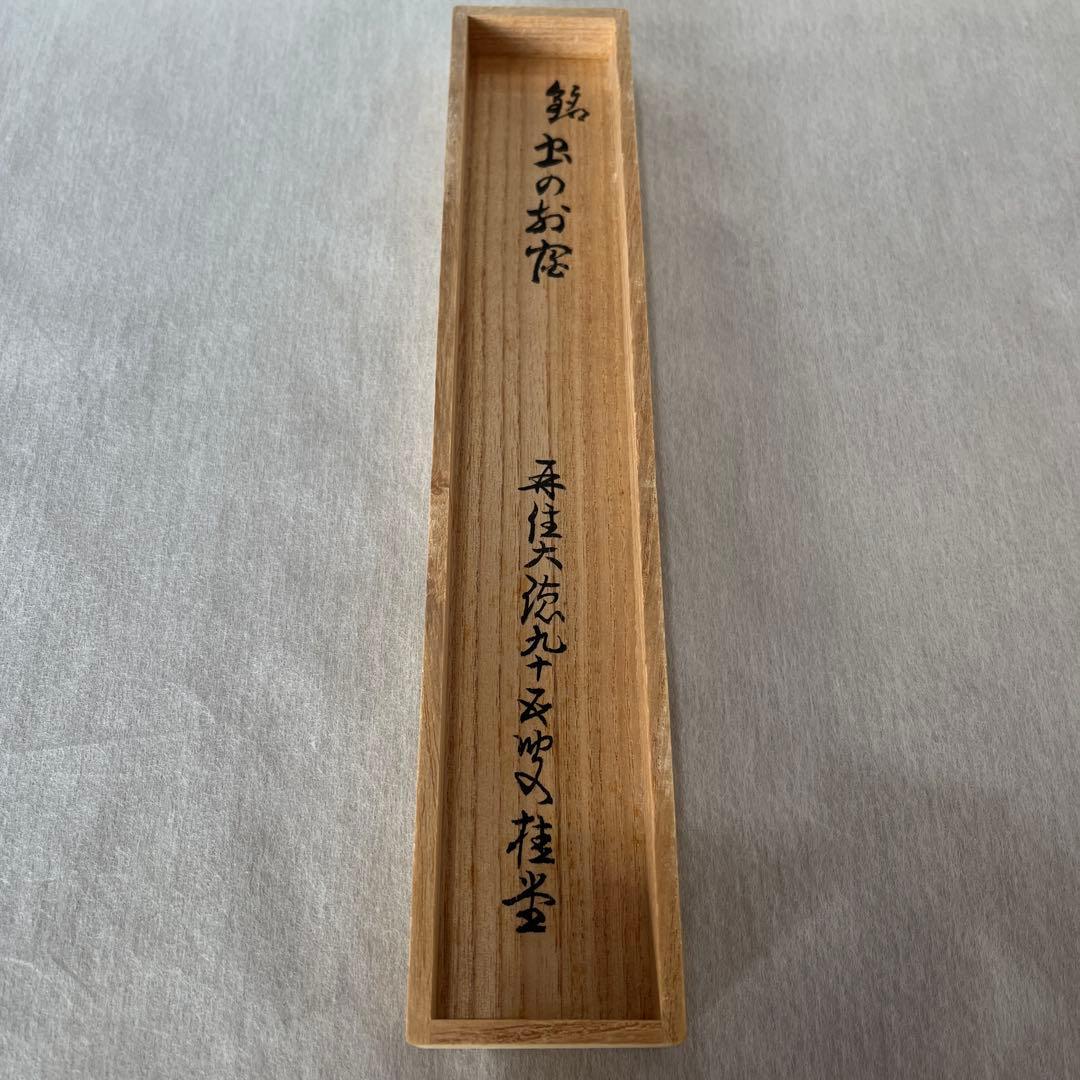 銘 虫のお宿
再住大徳九十五叟桂堂